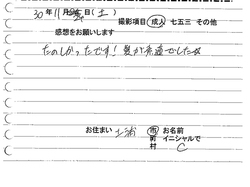 30年11月24日(土)
撮影項目 成人 七五三 その他
感想をお願いします
たのしかったです!髪が素適でした☆
お住まい 土浦 市 お名前
町 イニシャルで
村 C